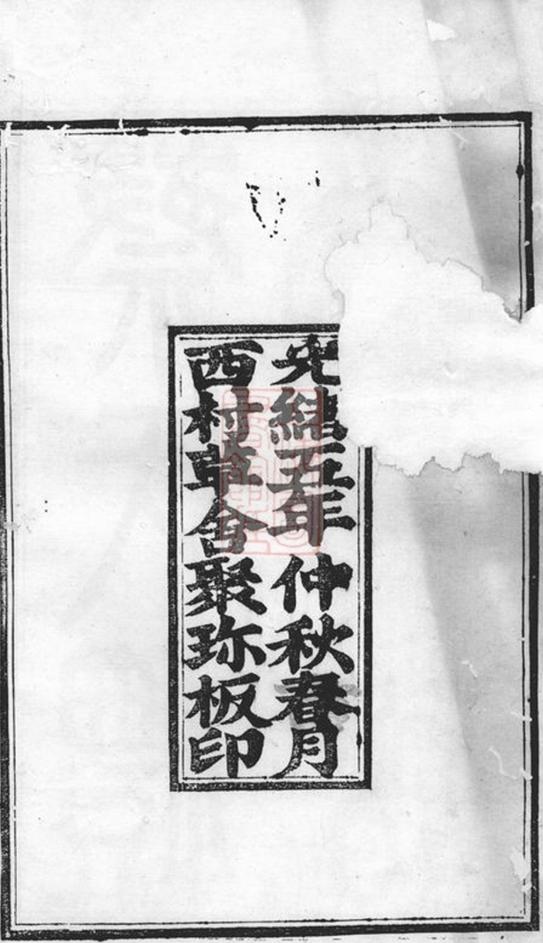 光緒五年仲秋春月
西村會聚珎板印